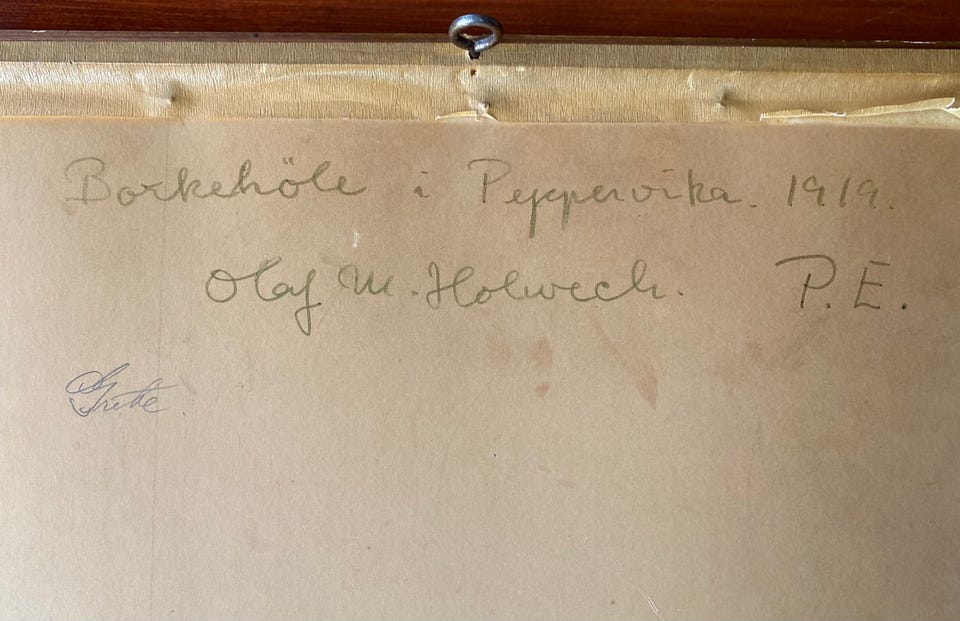 Borkehöle i Peppervika. 1919.
Olaf M. Holwech. P.E.
Grethe.